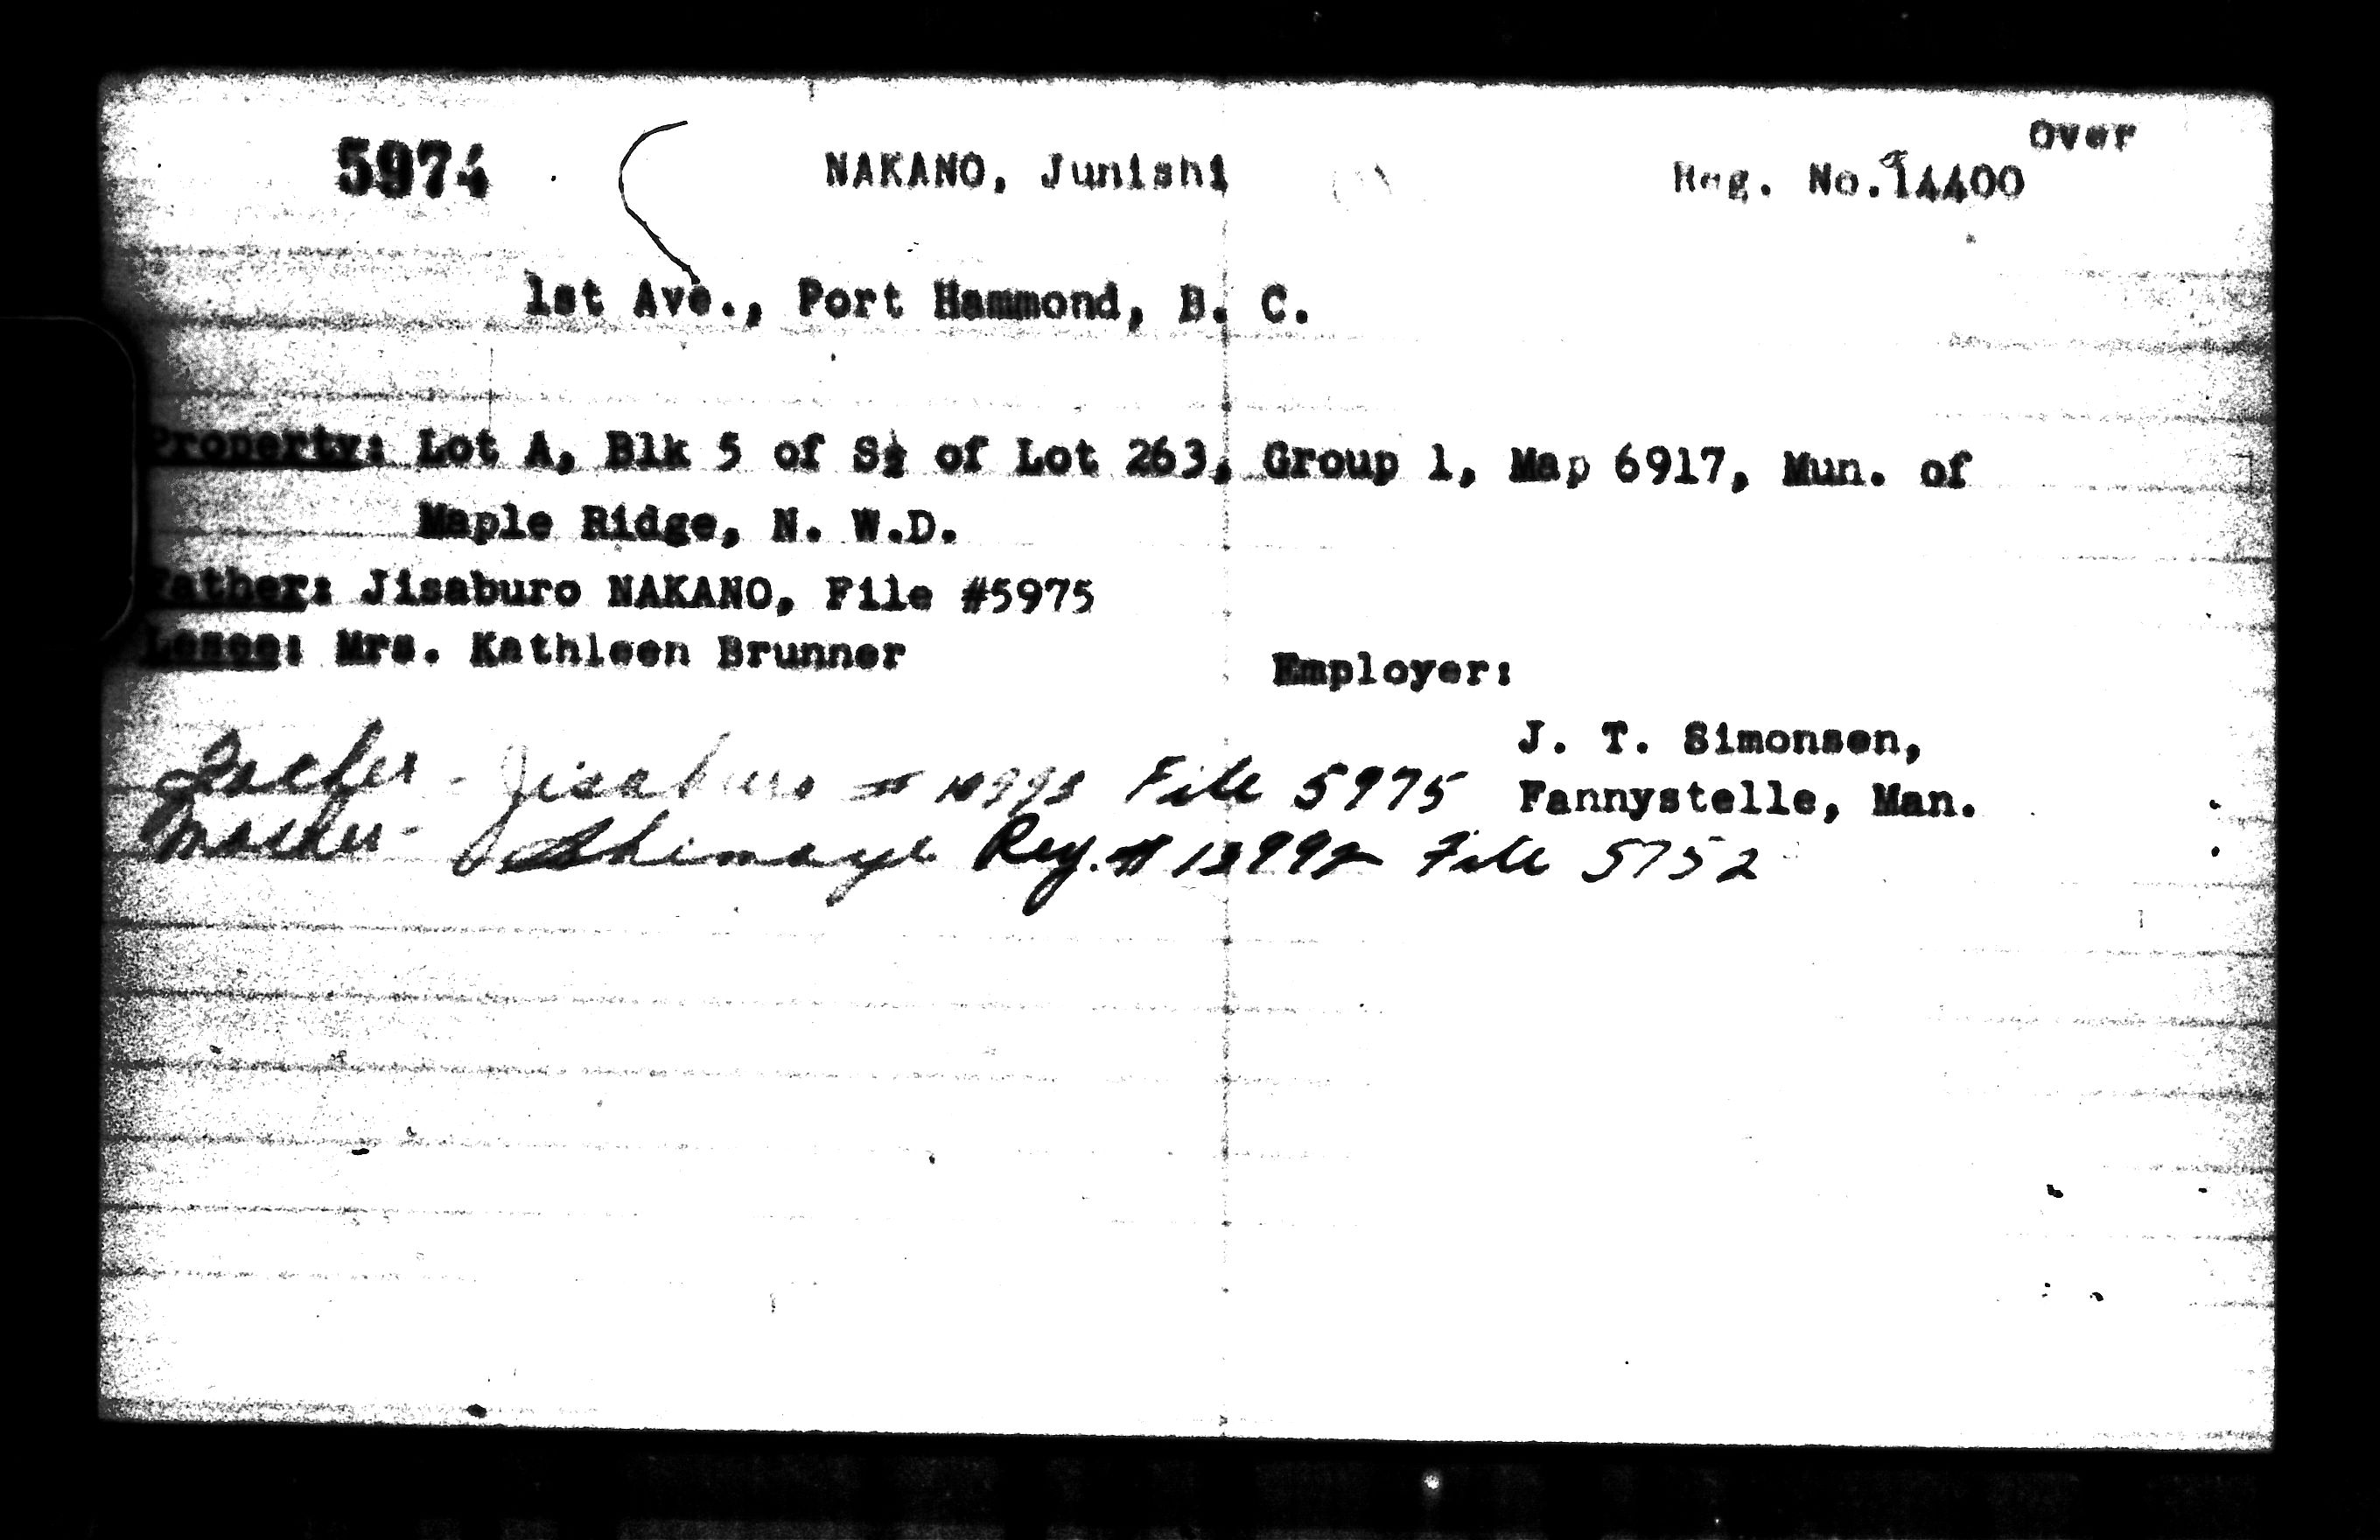 Over
5974 NAKANO, Junishi Reg. No. 14400
1st Ave., Port Hammond, B. C.
Property: Lot A, Blk 5 of S½ of Lot 263, Group 1, Map 6917, Mun. of
Maple Ridge, N. W.D.
Father: Jisaburo NAKANO, File #5975
Lease: Mrs. Kathleen Brunner
Employer:
J. T. Simonsen,
Fannystelle, Man.
Father - Jisaburo # File 5975
Mother - Shimaye Reg. # File 5752